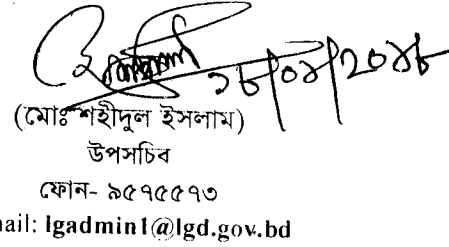 ১৮/০৯/২০১৮
(মোঃ শহীদুল ইসলাম)
উপসচিব
ফোন- ৯৫৭৫৫৭৩
nail: lgadmin1@lgd.gov.bd